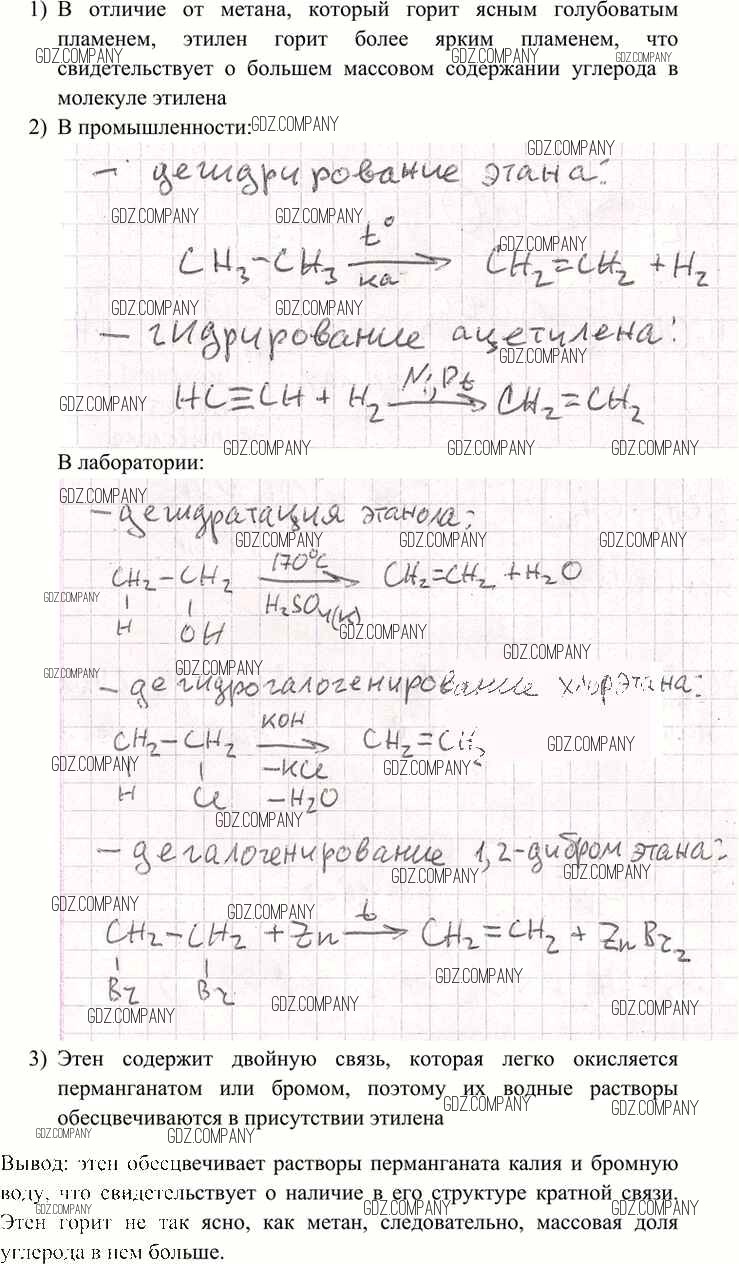 1) В отличие от метана, который горит ясным голубоватым
пламенем, этилен горит более ярким пламенем, что
свидетельствует о большем массовом содержании углерода в
молекуле этилена
2) В промышленности:
– дегидрирование этана:
CH₃–CH₃ t° ка CH₂=CH₂ + H₂
– гидрирование ацетилена:
HC≡CH + H₂ Ni, Pt CH₂=CH₂
В лаборатории:
– дегидратация этанола:
CH₂–CH₂ 170°C H₂SO₄(к) CH₂=CH₂ + H₂O
H OH
– дегидрогалогенирование хлорэтана:
CH₂–CH₂ KOH CH₂=CH₂
H Cl –KCl –H₂O
– дегалогенирование 1,2-дибромэтана:
CH₂–CH₂ + Zn t CH₂=CH₂ + ZnBr₂
Br Br
3) Этен содержит двойную связь, которая легко окисляется
перманганатом или бромом, поэтому их водные растворы
обесцвечиваются в присутствии этилена
Вывод: этен обесцвечивает растворы перманганата калия и бромную
воду, что свидетельствует о наличие в его структуре кратной связи.
Этен горит не так ясно, как метан, следовательно, массовая доля
углерода в нем больше.
GDZ.COMPANY